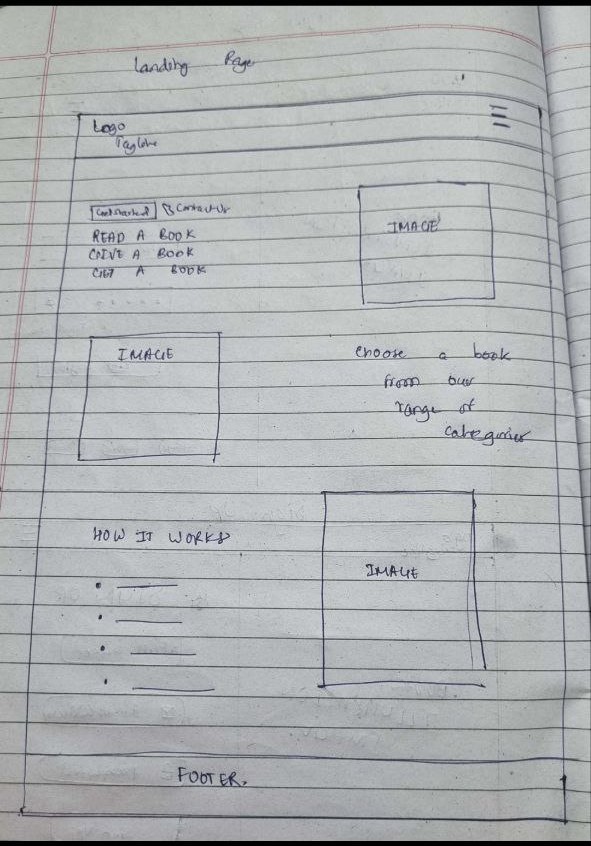 Landing Page
Logo
Tagline
Get Started Contact Us
READ A BOOK
GIVE A BOOK
GET A BOOK
IMAGE
IMAGE
choose a book
from our
range of
categories
HOW IT WORKS
IMAGE
FOOTER.